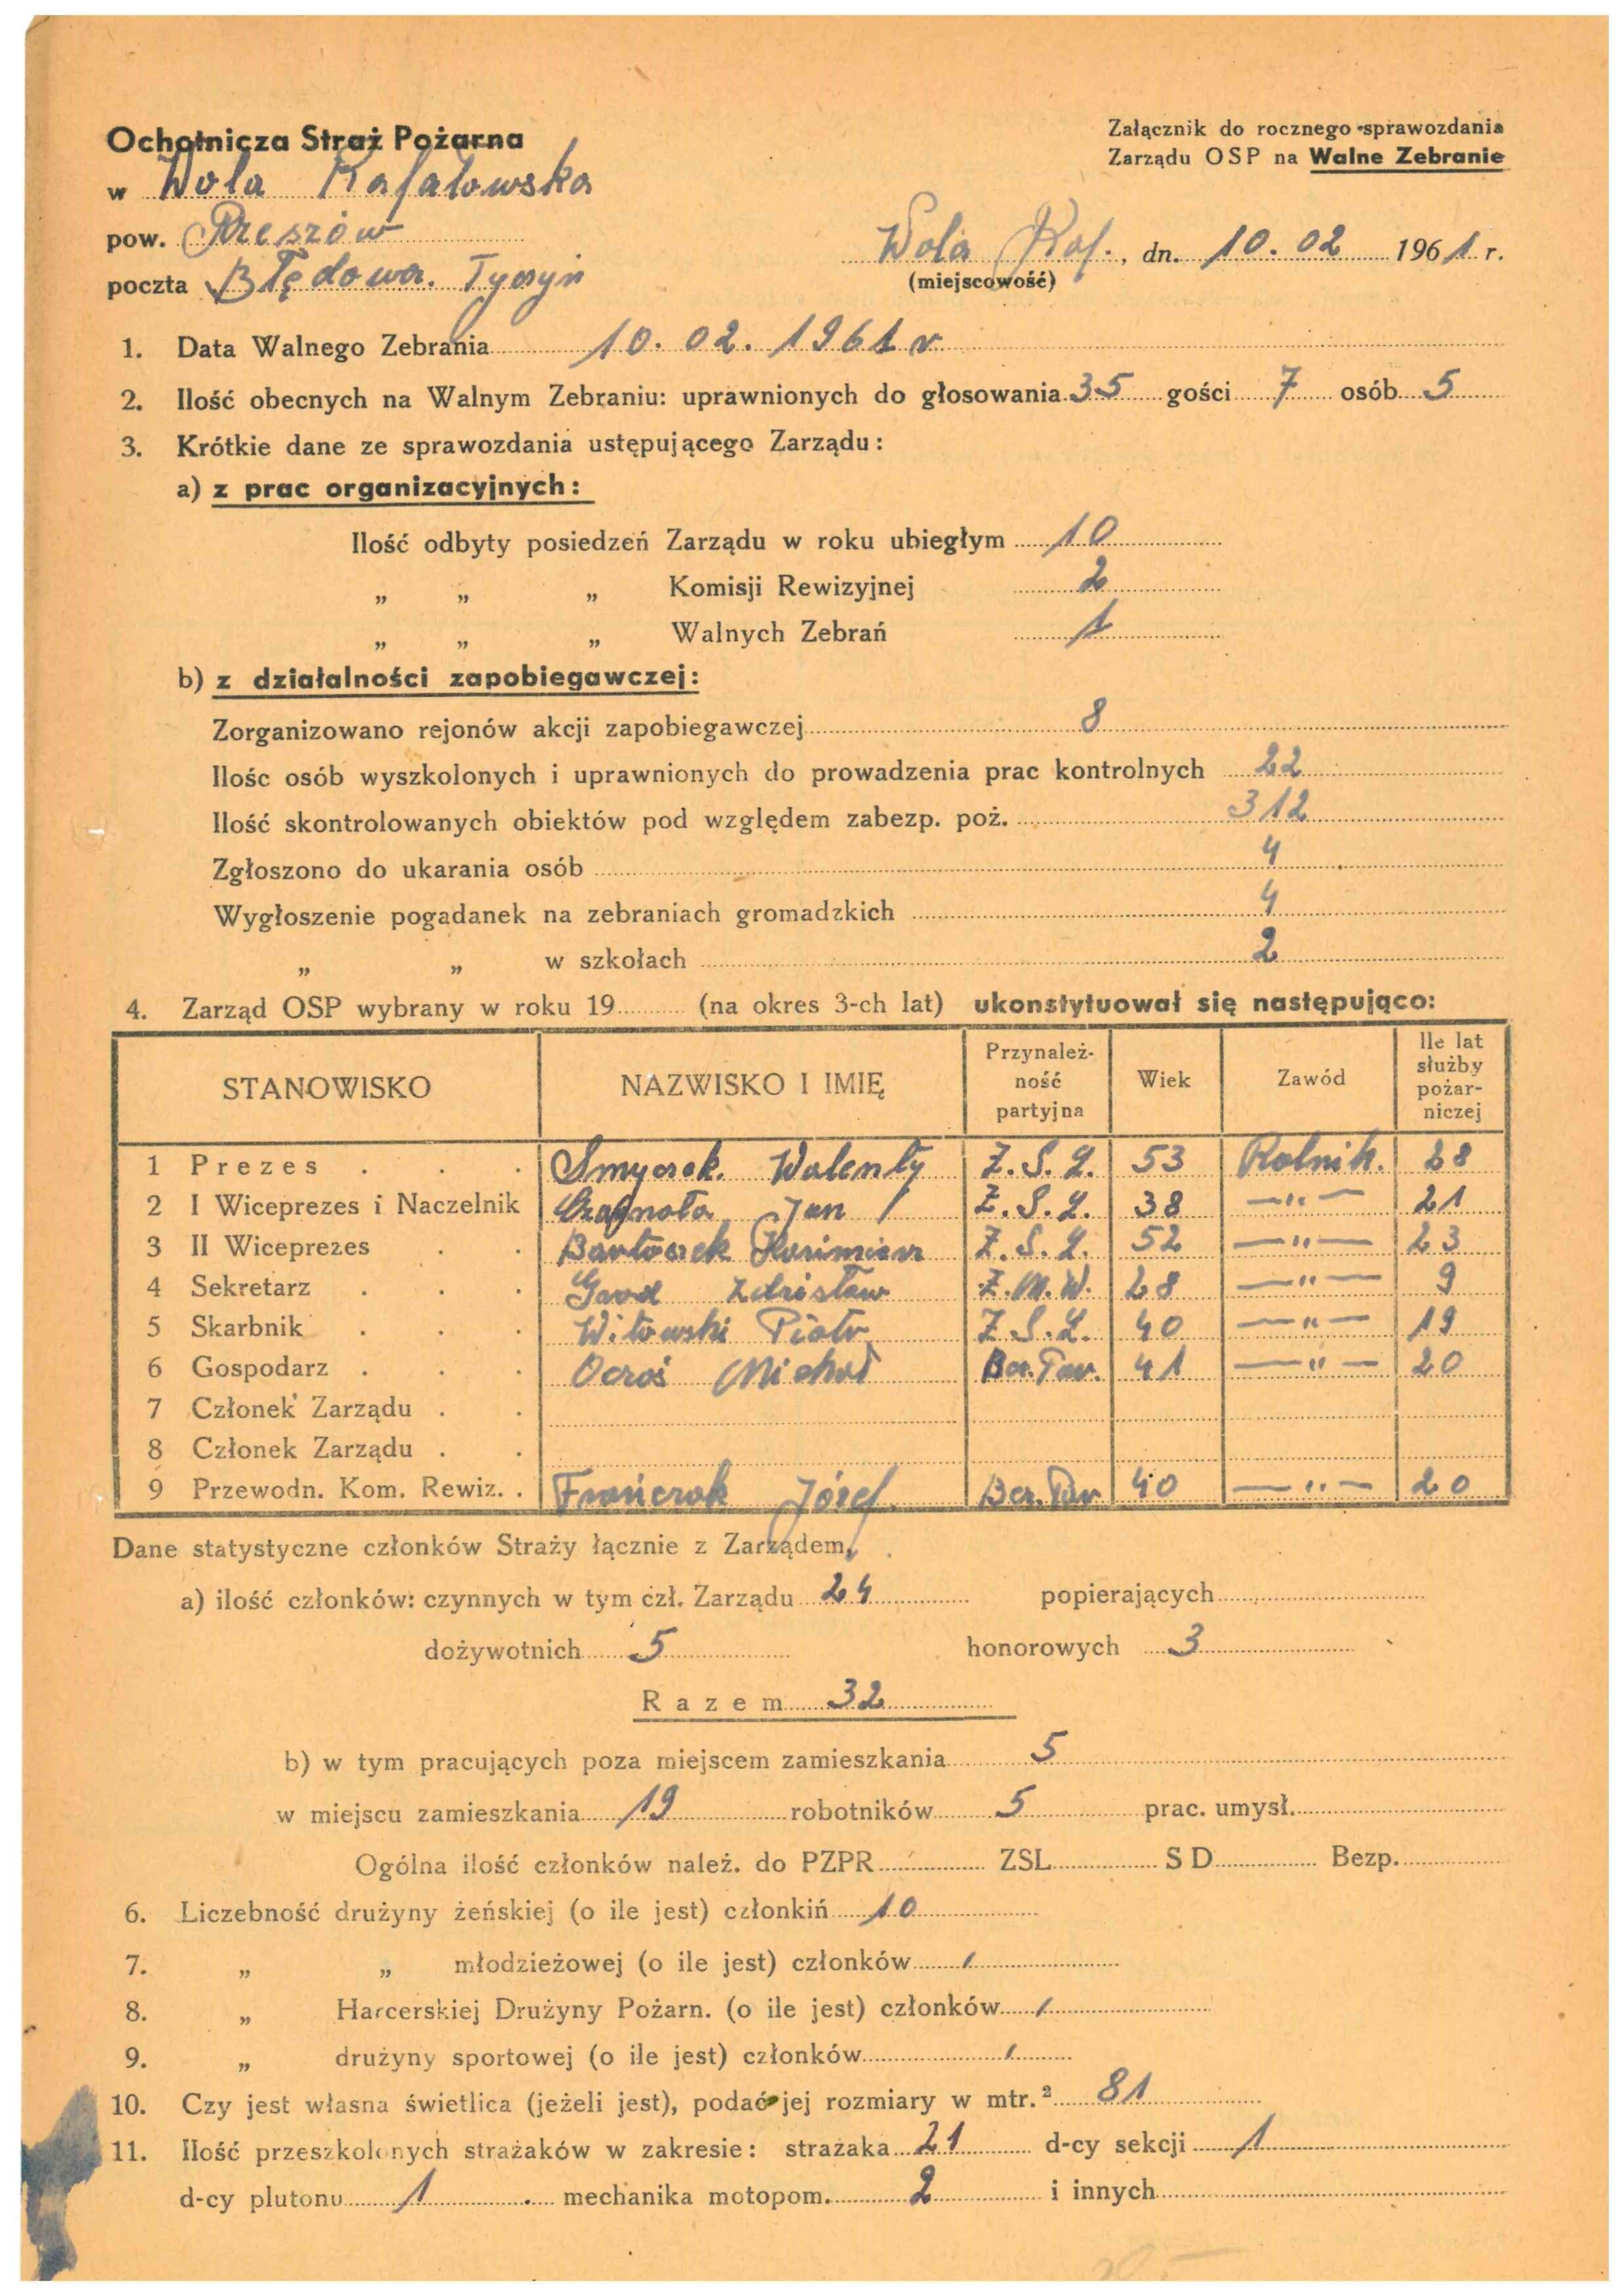 Ochotnicza Straż Pożarna
Załącznik do rocznego sprawozdania
Zarządu OSP na Walne Zebranie
w Wola Rafałowska
pow. Rzeszów
Wola Raf., dn. 10. 02 1961 r.
(miejscowość)
poczta Błędowa. Tyczyn
1. Data Walnego Zebrania 10. 02. 1961 r
2. Ilość obecnych na Walnym Zebraniu: uprawnionych do głosowania 35 gości 7 osób 5
3. Krótkie dane ze sprawozdania ustępującego Zarządu:
a) z prac organizacyjnych:
Ilość odbyty posiedzeń Zarządu w roku ubiegłym 10
„ „ „ Komisji Rewizyjnej 2
„ „ „ Walnych Zebrań 1
b) z działalności zapobiegawczej:
Zorganizowano rejonów akcji zapobiegawczej 8
Ilośc osób wyszkolonych i uprawnionych do prowadzenia prac kontrolnych 22
Ilość skontrolowanych obiektów pod względem zabezp. poż. 312
Zgłoszono do ukarania osób 4
Wygłoszenie pogadanek na zebraniach gromadzkich 4
„ „ w szkołach 2
4. Zarząd OSP wybrany w roku 19 (na okres 3-ch lat) ukonstytuował się następująco:
STANOWISKO NAZWISKO I IMIĘ Przynależ-ność partyjna Wiek Zawód Ile lat służby pożar-niczej
1 Prezes . . . Smyczek. Walenty Z.S.L. 53 Rolnik. 28
2 I Wiceprezes i Naczelnik Jan Z.S.L. 38 —"— 21
3 II Wiceprezes . . Bartoszek Kazimierz Z.S.L. 52 —"— 23
4 Sekretarz . . . Zdzisław Z.M.W. 28 —"— 9
5 Skarbnik . . . Witowski Piotr Z.S.L. 40 —"— 19
6 Gospodarz . . . Ocroś Michał Bez.Par. 41 —"— 20
7 Członek Zarządu . .
8 Członek Zarządu . .
9 Przewodn. Kom. Rewiz. . Frańczak Józef. Bez.Par 40 —"— 20
Dane statystyczne członków Straży łącznie z Zarządem,
a) ilość członków: czynnych w tym czł. Zarządu 24 popierających
dożywotnich 5 honorowych 3
Razem 32
b) w tym pracujących poza miejscem zamieszkania 5
w miejscu zamieszkania 19 robotników 5 prac. umysł.
Ogólna ilość członków należ. do PZPR ZSL SD Bezp.
6. Liczebność drużyny żeńskiej (o ile jest) członkiń 10
7. „ „ młodzieżowej (o ile jest) członków /
8. „ Harcerskiej Drużyny Pożarn. (o ile jest) członków /
9. „ drużyny sportowej (o ile jest) członków /
10. Czy jest własna świetlica (jeżeli jest), podać jej rozmiary w mtr.² 81
11. Ilość przeszkolonych strażaków w zakresie: strażaka 21 d-cy sekcji 1
d-cy plutonu 1 mechanika motopom. 2 i innych